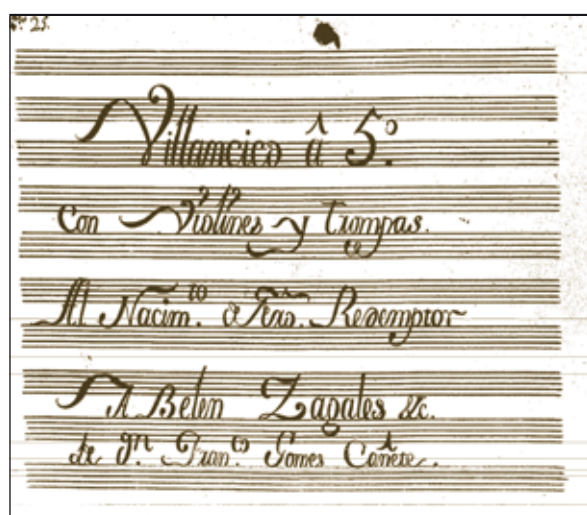 Nº 25.
Villancico â 5º.
Con Violines y trompas.
Al Nacim.to Redemptor
A Belen Zagales &c.
de Dn. Fran.co Gomes Cañete.